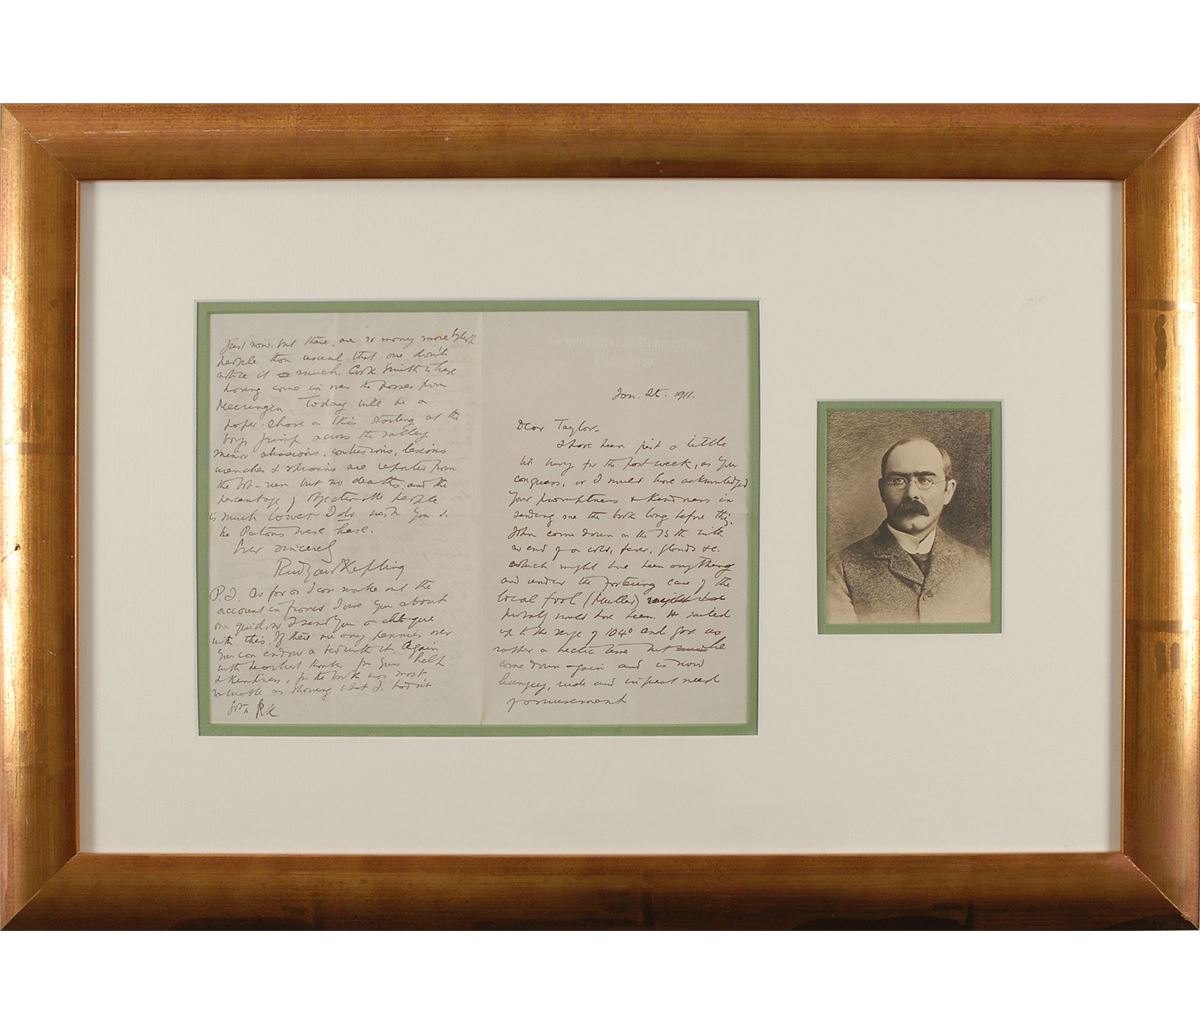 GRAND HOTEL
ENGELBERG
Jan. 1911.
Dear Taylor.
I have been just a little
busy for the past week, as you
conguess, or I should have acknowledged
your promptness & kindness in
sending me the book long before this.
John came down on the 13th with
no end of a cold, fever, glands &c.
which might have been anything
and under the fostering care of the
local fool (Muller)
probably would have been. He sailed
up to the verge of 104° and gave us
rather a hectic time but
come down again and is now
hungry, rude and in great need
of amusement
just now. but there are so many more
people than usual that one don't
notice it much. Cook Smith is here
having come in over the passes from
Meiringen. Today will be a
paper chase on skis starting at the
boys jump across the valley
minor abrasions, contusions, lesions
wrenches & sprains are reported from
the bob-run, but no deaths, and the
percentage of objectionable people
is much lower. I do wish you &
he Patons were here.
Ever sincerely
Rudyard Kipling
P.S. As far as I can make out the
account in francs I owe you about
one quid, so I send you a cheque
with this. If there are any pennies over
you can endow a bed with it. Again
with heartiest thanks for your help
& kindness, for the book was most
valuable as showing what I hadn't
RK